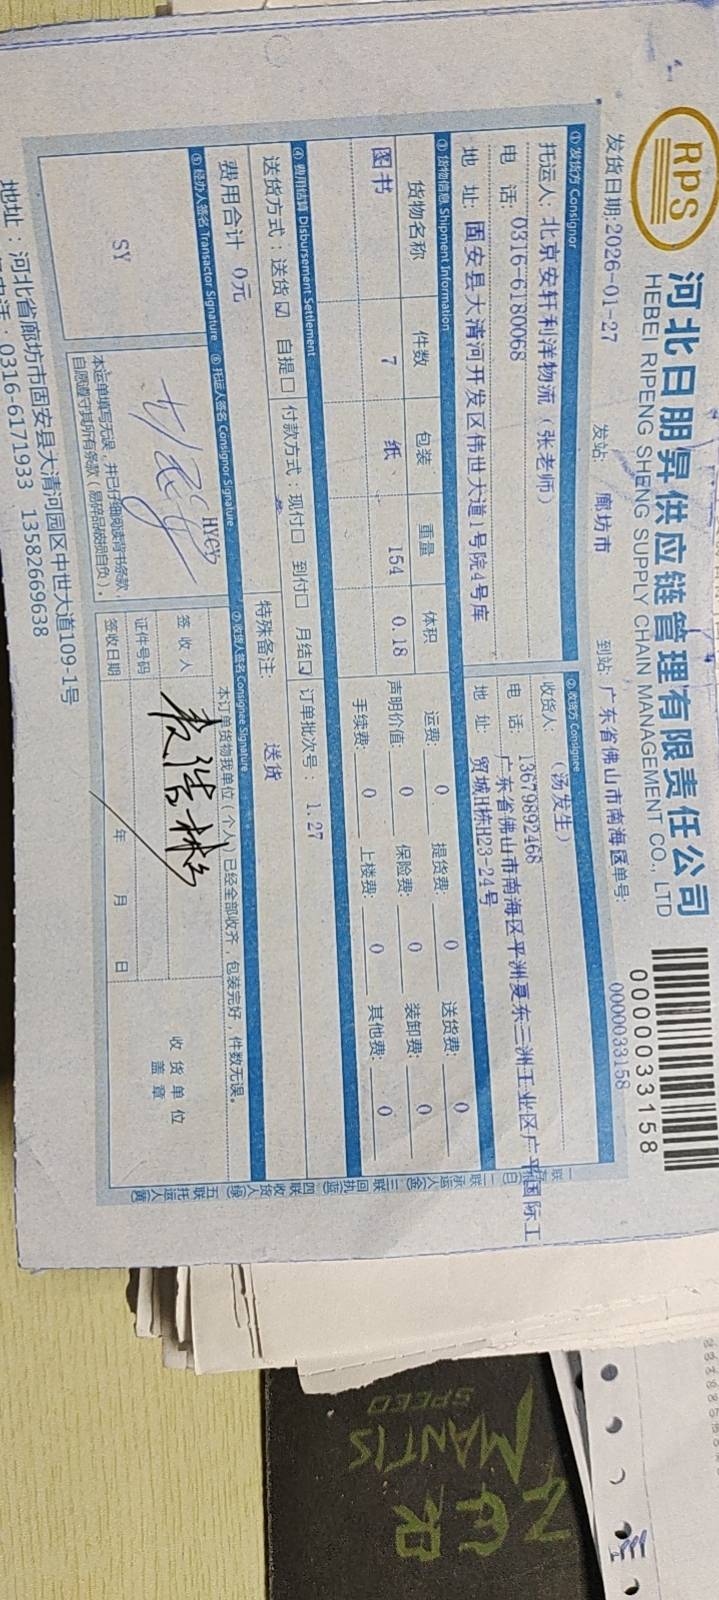 RPS
河北日朋昇供应链管理有限责任公司
HEBEI RIPENG SHENG SUPPLY CHAIN MANAGEMENT CO., LTD
0000033158
发货日期:2026-01-27 发站: 廊坊市 到站: 广东省佛山市南海区 单号: 0000033158
① 发货方 Consignor
托运人: 北京安轩利洋物流（张老师）
电 话: 0316-6180068
地 址: 固安县大清河开发区伟世大道1号院4号库
② 收货方 Consignee
收货人: （汤发生）
电 话: 13679892468
地 址: 广东省佛山市南海区平洲夏东三洲工业区广平国际工
贸城H栋H23-24号
③ 货物信息 Shipment Information
货物名称 件数 包装 重量 体积
图书 7 纸 154 0.18
运费: 0 提货费: 0 送货费: 0
声明价值: 0 保险费: 0 装卸费: 0
手续费: 0 上楼费: 0 其他费: 0
④ 费用结算 Disbursement Settlement
送货方式: 送货☑ 自提□ 付款方式: 现付□ 到付□ 月结☑ 订单批次号: 1.27
费用合计 0元 特殊备注: 送货
⑤ 经办人签名 Transactor Signature
SY
⑥ 托运人签名 Consignor Signature
本运单填写无误，并已仔细阅读背书条款，
自愿遵守其所有条款（易碎品破损自负）。
⑦ 收货人签名 Consignee Signature
本订单货物我单位（个人）已经全部收齐，包装完好，件数无误。
签 收 人
证件号码
签收日期 年 月 日
收货单位
盖章
地址：河北省廊坊市固安县大清河园区中世大道109-1号
电话：0316-6171933 13582669638
MANTIS
SPEED